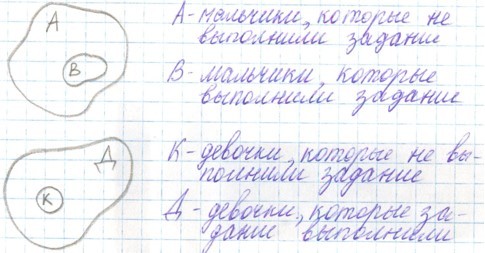 А
В
А - мальчики, которые не
выполнили задание
В - мальчики, которые
выполнили задание
Д
К
К - девочки, которые не вы-
полнили задание
Д - девочки, которые за-
дание выполнили